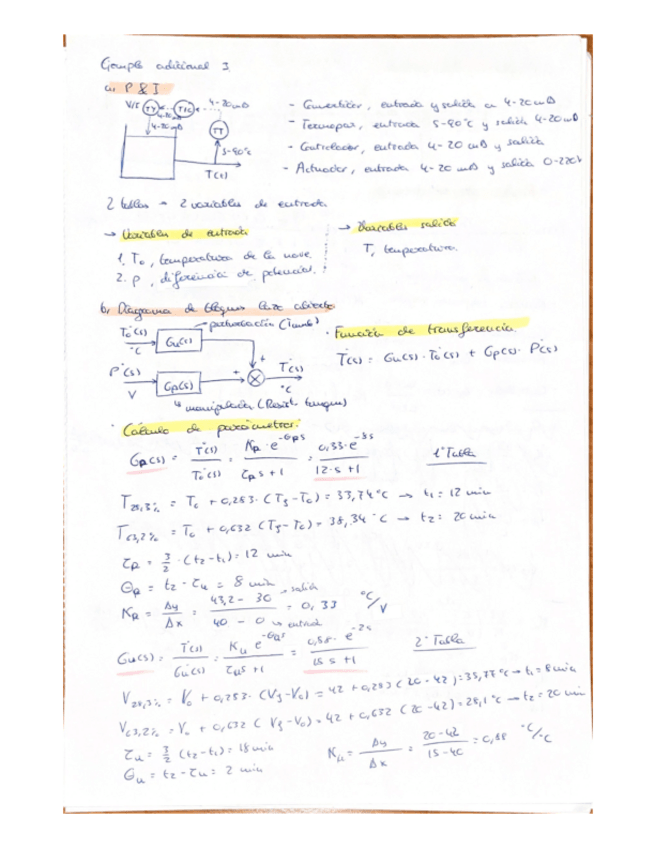 Ejemplo adicional 1
a) P & I
V/I TY TIC 4-20mA
4-20mA
4-20mA
TT
5-90°C
T(t)
- Convertidor, entrada y salida en 4-20mA
- Termopar, entrada 5-90°C y salida 4-20mA
- Controlador, entrada 4-20 mA y salida
- Actuador, entrada 4-20 mA y salida 0-220V
2 tablas → 2 variables de entrada
→ Variables de entrada
1. To, temperatura de la nave.
2. P, diferencia de potencial.
→ Variables salida
T, temperatura.
b) Diagrama de bloques lazo abierto
To(s) °C Gu(s) → perturbación
P(s) V Gp(s) + + T(s) °C
↳ manipulada (Resist. tanque)
· Función de transferencia.
T(s) = Gu(s) · To(s) + Gp(s) · P(s)
· Cálculo de parámetros:
Gp(s) = T(s) / To(s) = Kp · e^-θps / τp s + 1 = 0,33 · e^-8s / 12·s + 1
1ª Tabla
T28,3% = To + 0,283 · (Tf - To) = 33,74°C → t1 = 12 min
T63,2% = To + 0,632 (Tf - To) = 38,34°C → t2 = 20 min
τp = 3/2 · (t2 - t1) = 12 min
θp = t2 - τu = 8 min
Kp = Δy / Δx = 43,2 - 30 / 40 - 0 = 0,33 °C/V
→ salida
→ entrada
Gu(s) = T(s) / Gu(s) = Ku e^-θus / τu s + 1 = 0,88 · e^-2s / 18 s + 1
2ª Tabla
V28,3% = Vo + 0,283 · (Vf - Vo) = 42 + 0,283 (20 - 42) = 35,77°C → t1 = 8 min
V63,2% = Vo + 0,632 (Vf - Vo) = 42 + 0,632 (20 - 42) = 28,1°C → t2 = 20 min
τu = 3/2 (t2 - t1) = 18 min
θu = t2 - τu = 2 min
Ku = Δy / Δx = 20 - 42 / 15 - 40 = 0,88 °C/°C